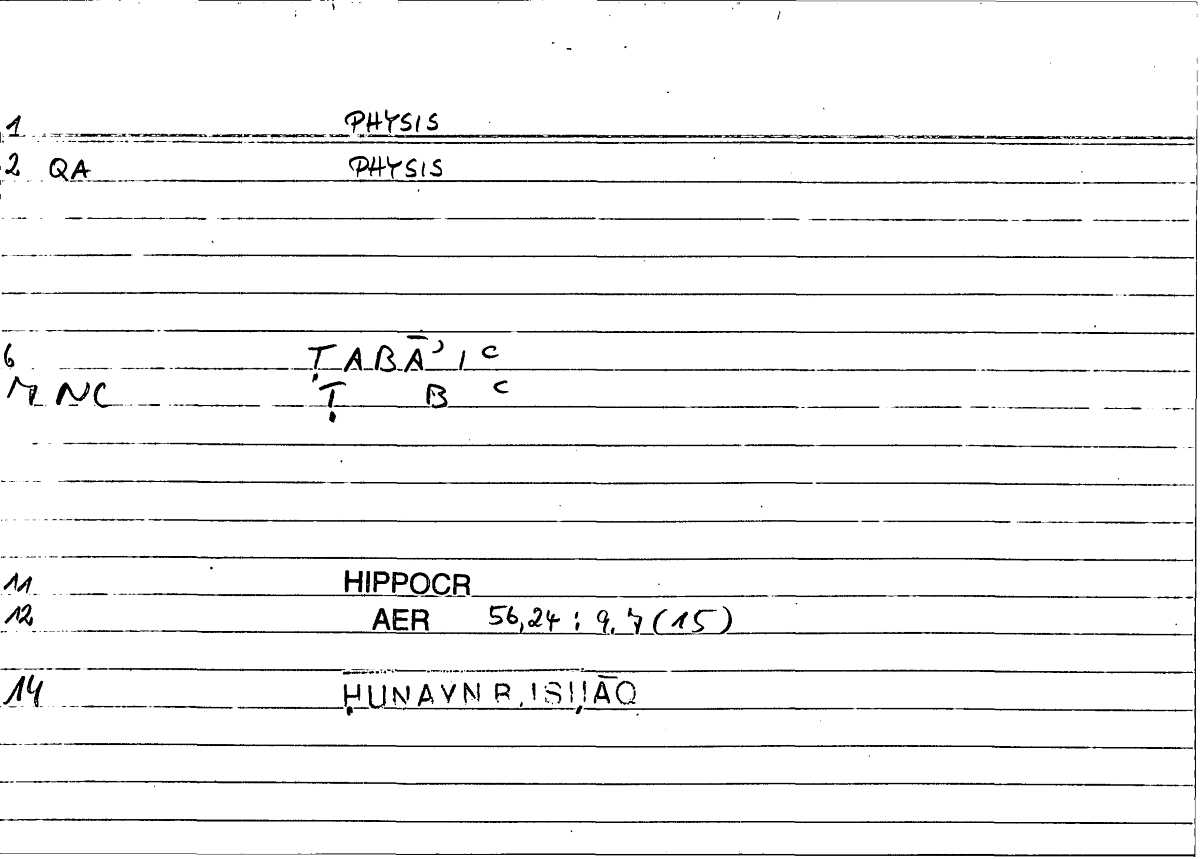 1 PHYSIS
2 QA PHYSIS
6 ṬABĀʾIʿ
7 NC Ṭ B ʿ
11 HIPPOCR
12 AER 56,24 : 9,7 (15)
14 ḤUNAYN B. ISḤĀQ